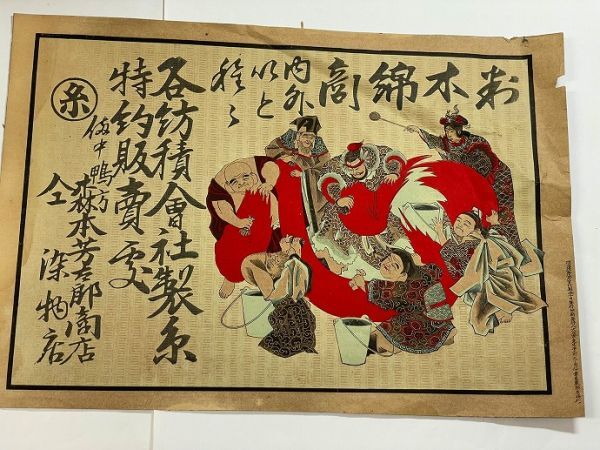 木綿商
内外
以と
種々
各紡積會社製糸
特約販賣処
糸
備中鴨方
森本芳吉郎商店
仝 染物店